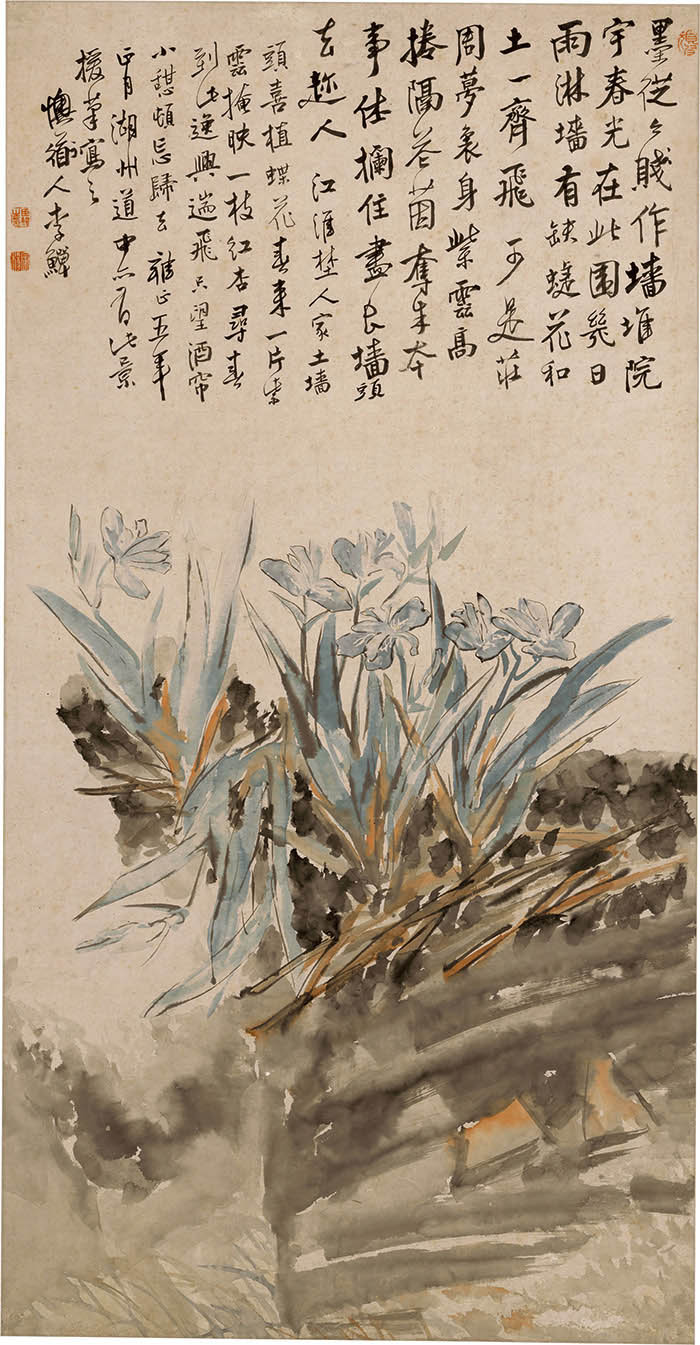 墨從今賤作墻堆院
宇春光在此圍幾日
雨淋墻有缺蝶花和
土一齊飛可是莊
周夢裏身紫雲高
捲隔花茵奪朱本
事休攔住盡墻頭
去趂人江淮埜人家土墻
頭喜植蝶花春來一片紫
雲掩映一枝紅杏尋春
到此逸興遄飛只望酒帘
小憩頓忘歸去雍正五年
正月湖州道中亦有此景
援筆寫之
懊道人李鱓